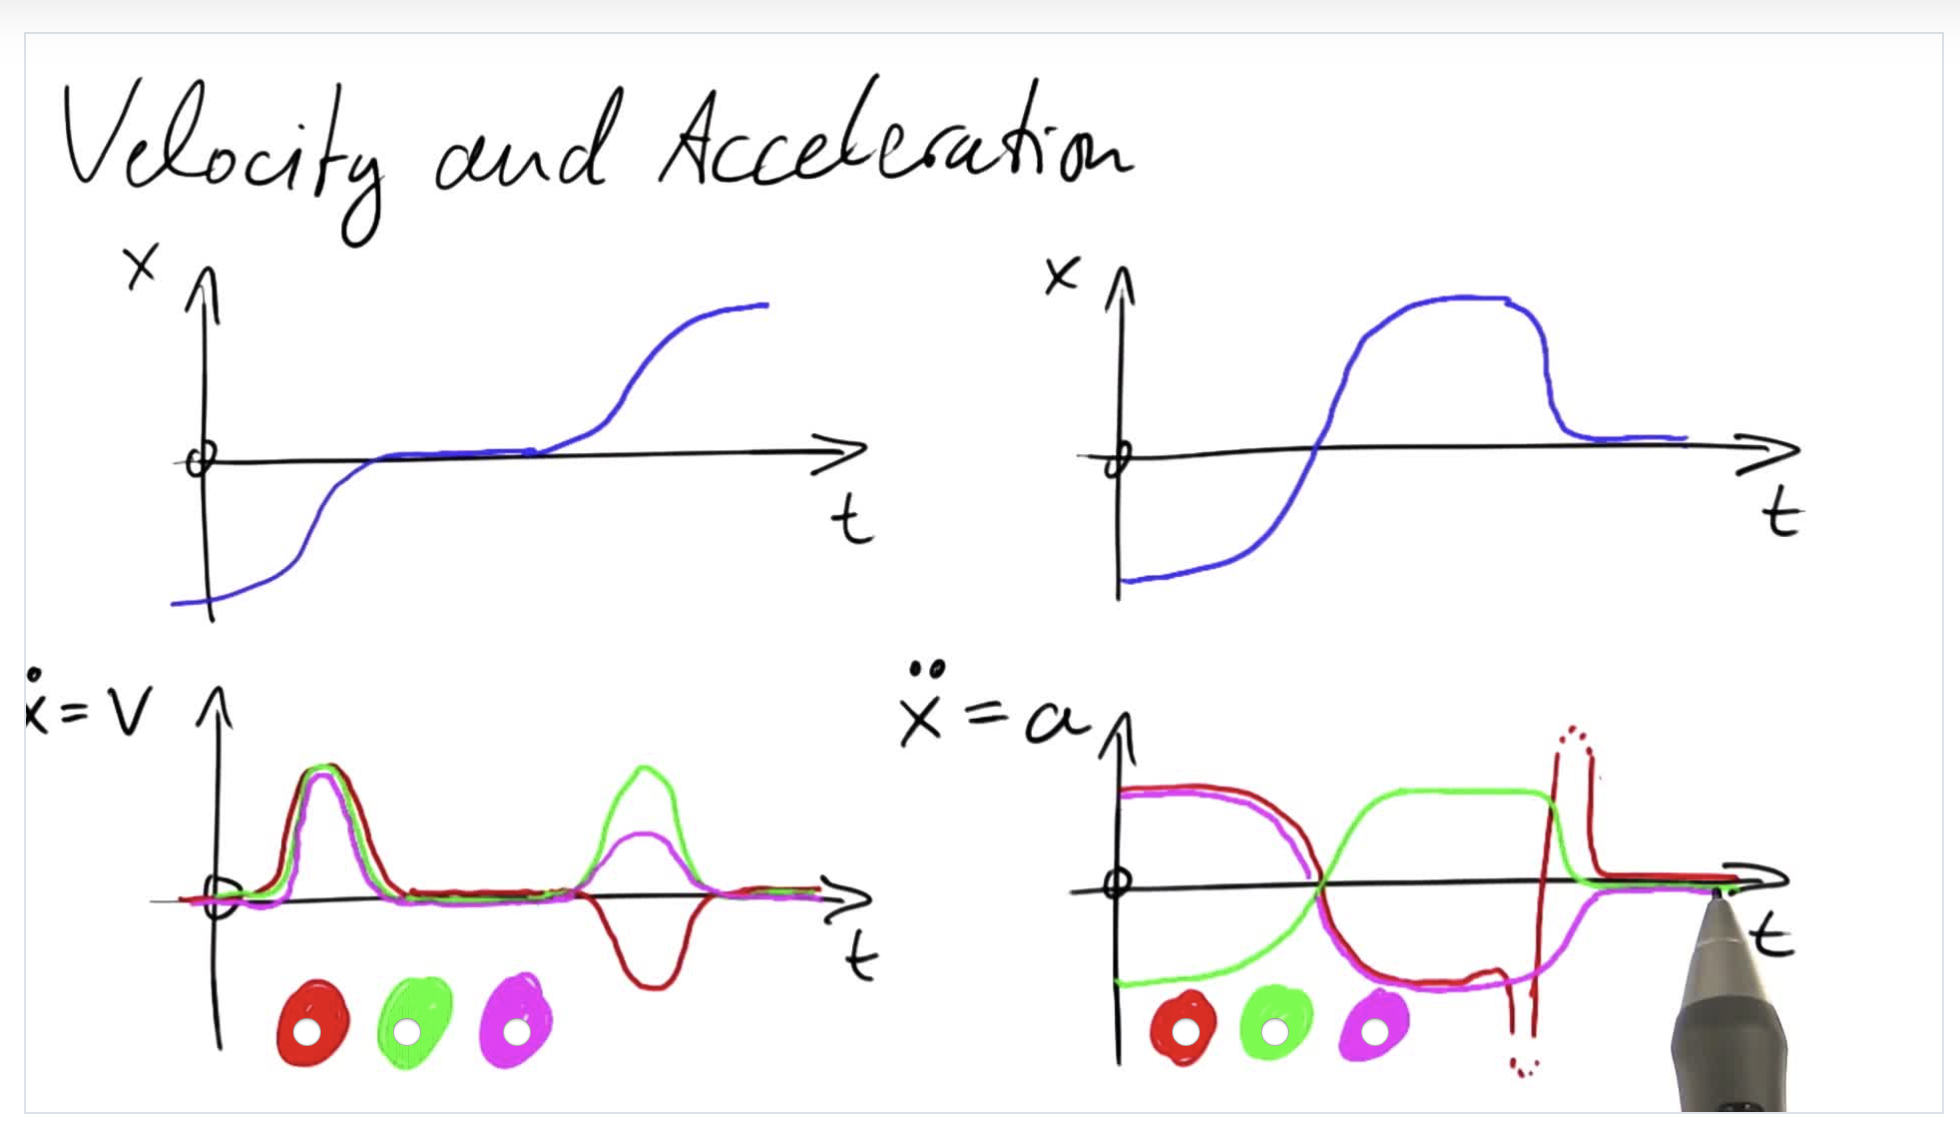 Velocity and Acceleration
x
x
0
t
0
t
ẋ = v
ẍ = a
0
t
0
t